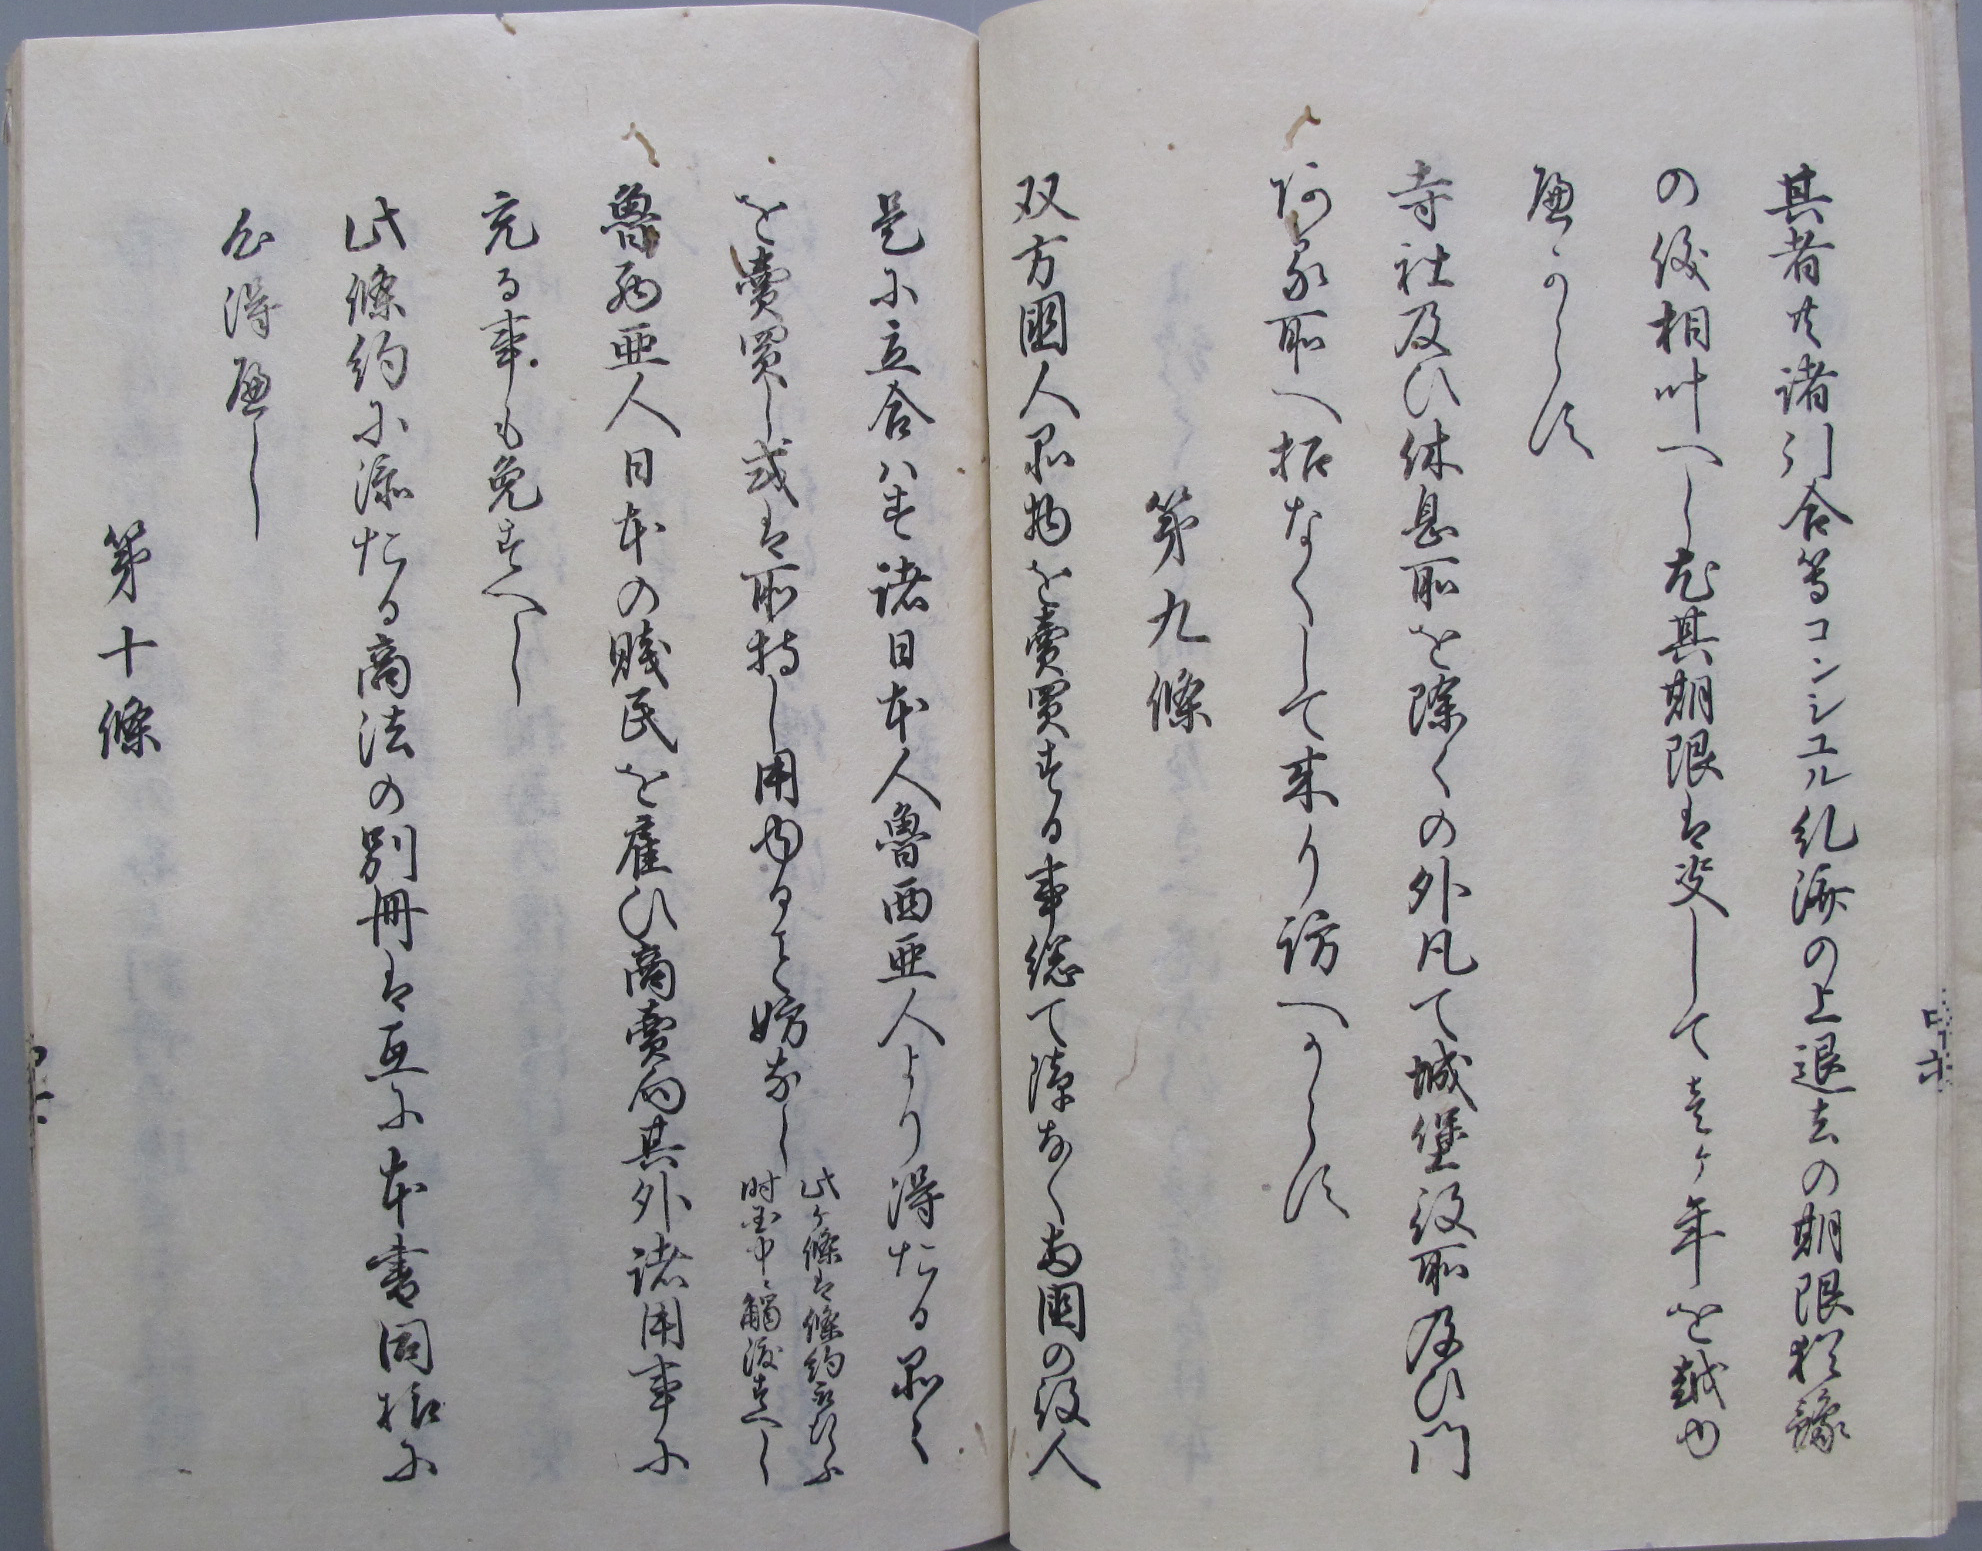 其者共諸引合等コンシユル糺済の上退去の期限猶豫
の後相叶へし尤其期限は決して壱ヶ年を越ゆ
へからす
寺社及ひ休息所を除くの外凡て城堡役所及ひ門
ある所へ招なくして来り訪へからす
第九條
双方國人品物を賣買する事總て障なく両國の役人
是に立合ハす諸日本人魯西亜人より得たる品々
を賣買し或は所持し用ゆるに妨なし此ヶ條は條約取行ふ
時国中に觸渡すへし
魯西亜人日本の賤民を雇ひ商賣向其外諸用事に
充る事も免すへし
此條約に添たる商法の別冊は互に本書同様に
心得へし
第十條